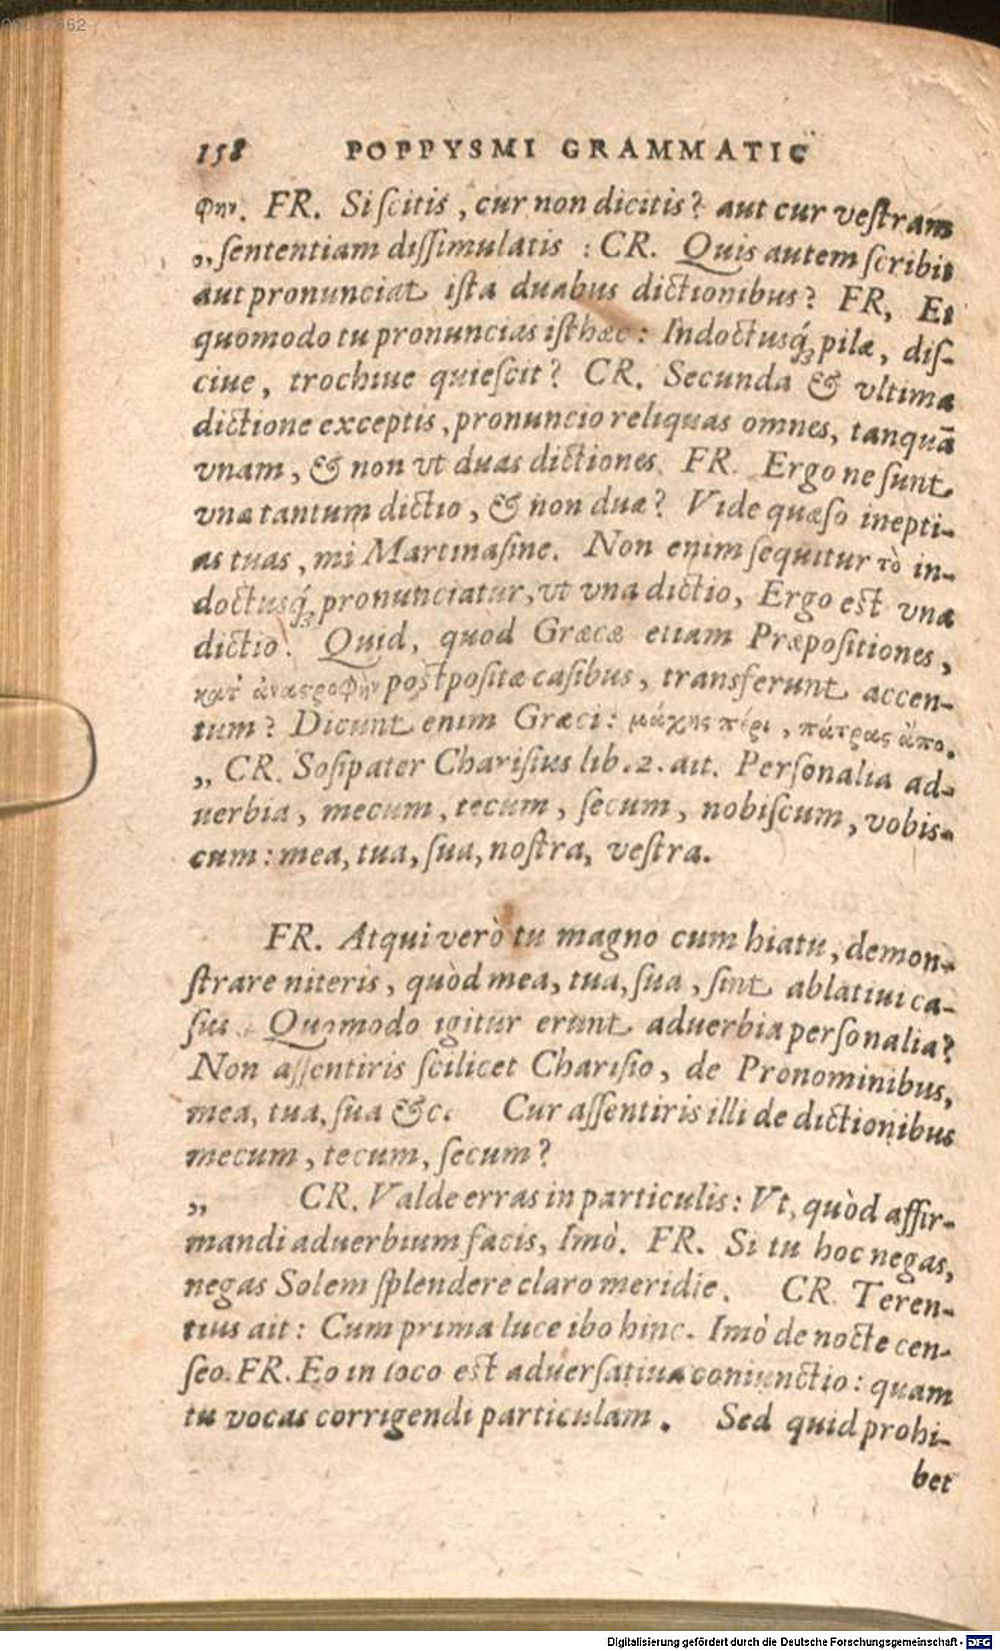 158 POPPYSMI GRAMMATIC
φην. FR. Si ſcitis, cur non dicitis? aut cur veſtram
„ ſententiam diſſimulatis : CR. Quis autem ſcribit
aut pronunciat iſta duabus dictionibus? FR, Et
quomodo tu pronuncias iſthæc : Indoctusq́ꝫ pilæ, diſ-
ciue, trochiue quieſcit? CR. Secunda & vltima
dictione exceptis, pronuncio reliquas omnes, tanquā
vnam, & non vt duas dictiones. FR. Ergo ne ſunt
vna tantum dictio, & non duæ? Vide quæſo inepti-
as tuas, mi Martinaſine. Non enim ſequitur τὸ in-
doctusq́ꝫ pronunciatur, vt vna dictio, Ergo est vna
dictio. Quid, quod Græcæ etiam Præpoſitiones,
κατ' ἀναςροφὴν postpoſitæ caſibus, transferunt accen-
tum? Dicunt enim Græci: μάχης πέρι, πάτρας ἄπο.
„ CR. Soſipater Chariſius lib. 2. ait. Perſonalia ad-
uerbia, mecum, tecum, ſecum, nobiſcum, vobis-
cum: mea, tua, ſua, noſtra, veſtra.
FR. Atqui verò tu magno cum hiatu, demon-
ſtrare niteris, quòd mea, tua, ſua, ſint ablatiui ca-
ſus. Quomodo igitur erunt aduerbia perſonalia?
Non aſſentiris ſcilicet Chariſio, de Pronominibus,
mea, tua, ſua &c. Cur aſſentiris illi de dictionibus
mecum, tecum, ſecum?
„ CR. Valde erras in particulis: Vt, quòd affir-
mandi aduerbium facis, Imò. FR. Si tu hoc negas,
negas Solem ſplendere claro meridie. CR. Teren-
tius ait: Cum prima luce ibo hinc. Imò de nocte cen-
ſeo. FR. Eo in loco est aduerſatiua coniunctio: quam
tu vocas corrigendi particulam. Sed quid prohi-
bet
Digitalisierung gefördert durch die Deutsche Forschungsgemeinschaft - DFG